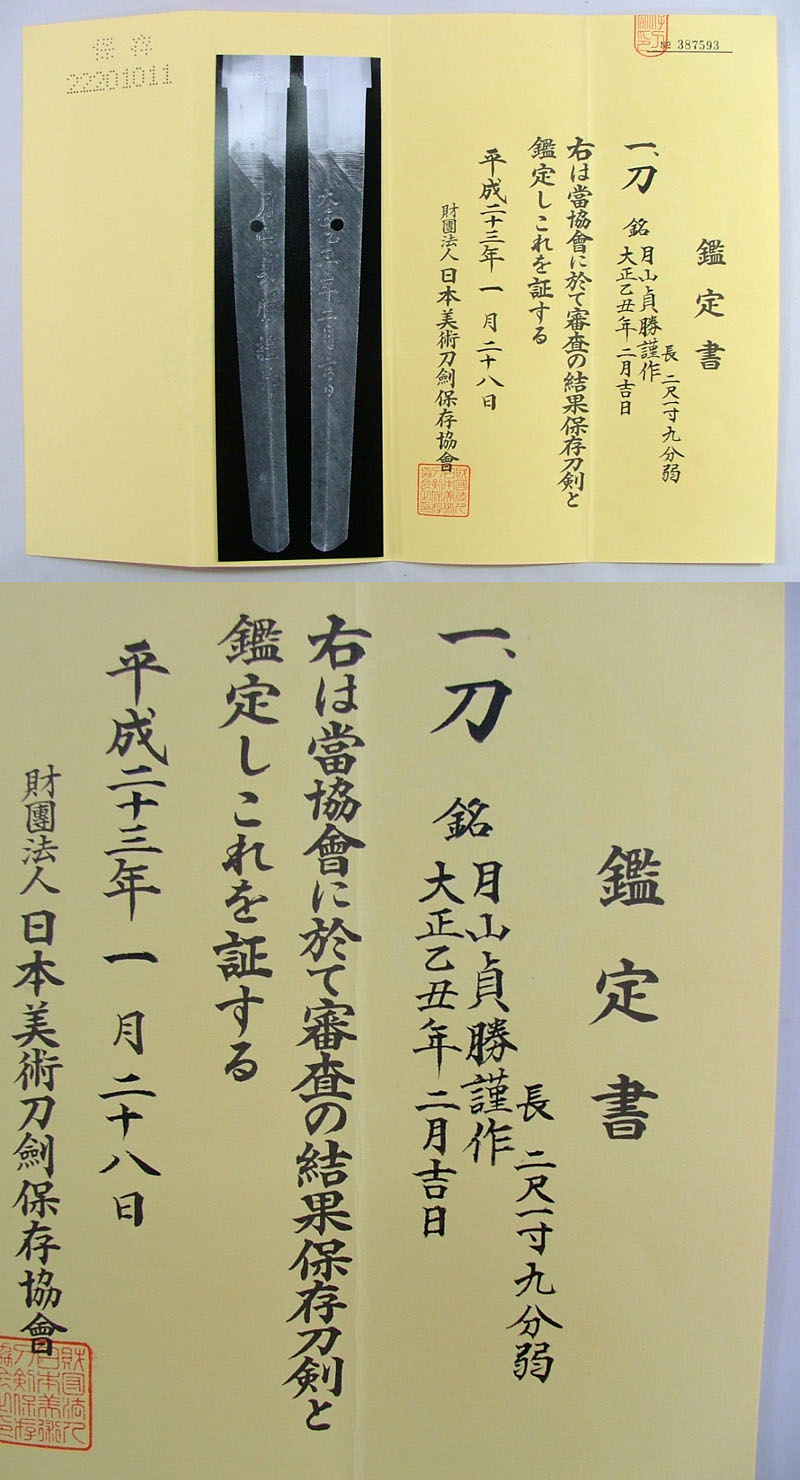 保存
22201011
№ 387593
鑑定書
一、刀
銘
長 二尺一寸九分弱
月山貞勝謹作
大正乙丑年二月吉日
右は當協會に於て審査の結果保存刀剣と
鑑定しこれを証する
平成二十三年一月二十八日
財團法人日本美術刀劍保存協會
月山貞勝謹作
大正乙丑年二月吉日
鑑定書
一、刀
銘
長 二尺一寸九分弱
月山貞勝謹作
大正乙丑年二月吉日
右は當協會に於て審査の結果保存刀剣と
鑑定しこれを証する
平成二十三年一月二十八日
財團法人日本美術刀劍保存協會